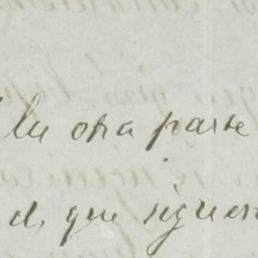 la otra parte
d, que siguen